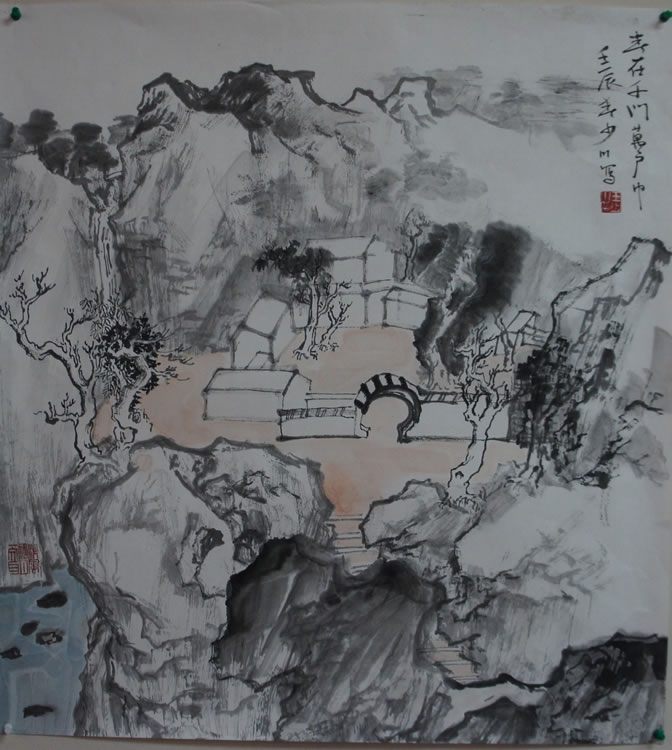 春在千门万户中
壬辰春少川写